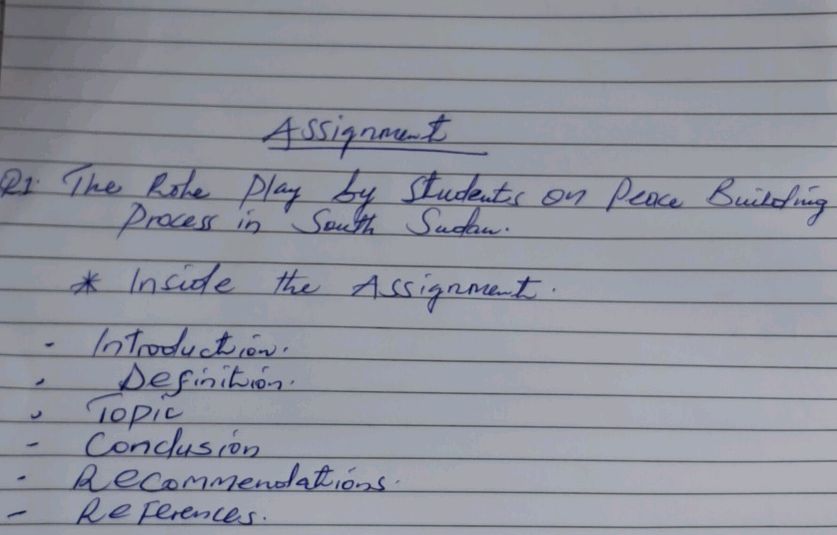 Assignment
Q1. The Role Play by Students on Peace Building
Process in South Sudan.
* Inside the Assignment.
- Introduction.
- Definition.
- Topic
- Conclusion
- Recommendations.
- References.